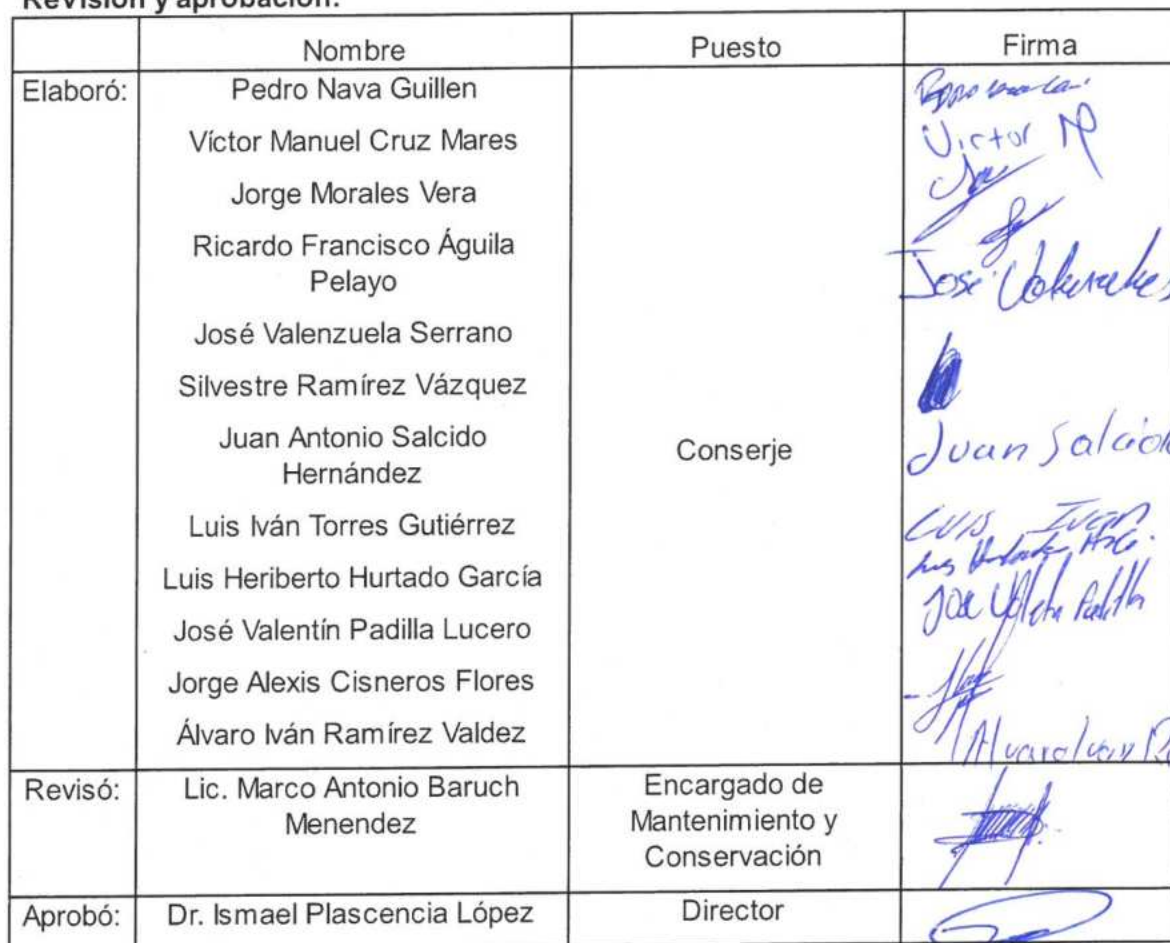 Revisión y aprobación:
Nombre Puesto Firma
Elaboró: Pedro Nava Guillen
Víctor Manuel Cruz Mares Victor M
Jorge Morales Vera
Ricardo Francisco Águila
Pelayo
José
José Valenzuela Serrano
Silvestre Ramírez Vázquez
Juan Antonio Salcido
Hernández
Conserje Juan Salcido
Luis Iván Torres Gutiérrez Luis Ivan
Luis Heriberto Hurtado García
José Valentín Padilla Lucero
Jorge Alexis Cisneros Flores
Álvaro Iván Ramírez Valdez Alvaro Ivan
Revisó: Lic. Marco Antonio Baruch
Menendez
Encargado de
Mantenimiento y
Conservación
Aprobó: Dr. Ismael Plascencia López Director